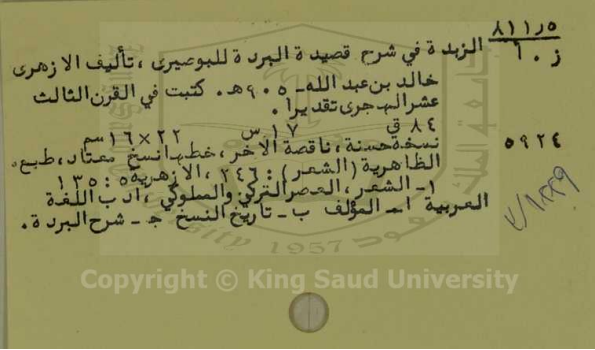 ٨١١٫٥
ز ٠ أ
الزبدة في شرح قصيدة البردة للبوصيرى ، تأليف الازهرى
خالد بن عبد الله ـ ٩٠٥ هـ . كتبت في القرن الثالث
عشر الهجرى تقديرا .
٨٤ ق ١٧ س ٢٢×١٦ سم
نسخة حسنة ، ناقصة الآخر ، خطها نسخ معتاد ، طبع .
٥٩٢٤
الظاهرية (الشعر) : ٢٤٦ ، الازهرية ٥ : ١٣٥
١ـ الشعر ، العصر التركي والمملوكي ، ادب اللغة
العربية أ ـ المؤلف ب ـ تاريخ النسخ جـ ـ شرح البردة .
1957
Copyright © King Saud University